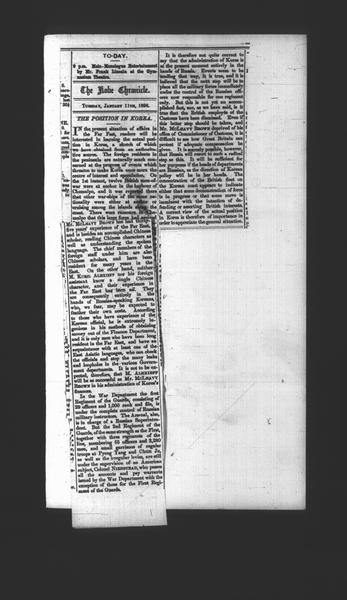 TO-DAY.
9 p.m. Melo-Monologue Entertainment
by Mr. Frank Lincoln at the Gym-
nasium Theatre.
The Kobe Chronicle.
TUESDAY, JANUARY 11TH, 1898.
THE POSITION IN KOREA.
IN the present situation of affairs in
the Far East, readers will be
interested in learning the actual posi-
tion in Korea, a sketch of which
we have obtained from an authorita-
tive source. The foreign residents in
the peninsula are naturally much con-
cerned at the progress of events which
threaten to make Korea once more the
centre of interest and speculation. On
the 1st instant, twelve British men-of-
war were at anchor in the harbour of
Chemulpo, and it was reported there
that other war-ships of the same na-
tionality were either at anchor or
cruising among the islands along the
coast. There was
Mr. MCLEAVY BROWN has had
five years' experience of the Far East,
and is besides an accomplished Chinese
scholar, reading Chinese characters as
well as understanding the spoken
language. The chief members of the
foreign staff under him are also
Chinese scholars, and have been
resident for many years in the
East. On the other hand, neither
M. KIRIL ALEXIEFF nor his foreign
assistant know a single Chinese
character, and their experience in
the Far East has been nil. They
are consequently entirely in the
hands of Russian-speaking Koreans,
who, we fear, may be expected to
feather their own nests. According
to those who have experience of the
Korean official, he is extremely in-
genious in his methods of obtaining
money out of the Finance Department,
and it is only men who have been long
resident in the Far East, and have an
acquaintance with at least one of the
East Asiatic languages, who can check
the officials and stop the many leaks
and loopholes in the various Govern-
ment departments. It is not to be ex-
pected, therefore, that M. ALEXIEFF
will be as successful as Mr. MCLEAVY
BROWN in his administration of Korea's
finances.
In the War Department the first
Regiment of the Guards, consisting of
29 officers and 1,000 rank and file, is
under the complete control of Russian
military instructors. The Arsenal, also,
is in charge of a Russian Superinten-
dent. But the 2nd Regiment of the
Guards, of the same strength as the First,
together with three regiments of the
line, numbering 65 officers and
men, and small garrisons of regular
troops at Pyong Yang and Chun Ju,
as well as the irregular levies, are still
under the supervision of an American
subject, Colonel NIENSTEAD, who passes
all the accounts and pay warrants
issued by the War Department with the
exception of those for the First Regi-
ment of the Guards.
It is therefore not quite correct to
say that the administration of Korea is
at the present moment entirely in the
hands of Russia. Events seem to be
tending that way, it is true, and it is
believed that the next step will be to
place all the military forces immediately
under the control of the Russian offi-
cers now responsible for one regiment
only. But this is not yet an accom-
plished fact, nor, as we have said, is it
true that the British employés of the
Customs have been dismissed. Even if
this latter step should be taken, and
Mr. MCLEAVY BROWN deprived of his
office of Commissioner of Customs, it is
difficult to see how Great Britain can
protest if adequate compensation be
given. It is scarcely possible, however,
that Russia will resort to such a radical
step as this. It will be sufficient for
her purposes if the heads of departments
are Russian, as the direction of Korean
policy will be in her hands. The
concentration of the British fleet on
the Korean coast appears to indicate
either that some demonstration of force
is in progress or that some move is
imminent with the intention of de-
fending or asserting British interests.
A correct view of the actual position
in Korea is therefore of importance in
order to appreciate the general situation